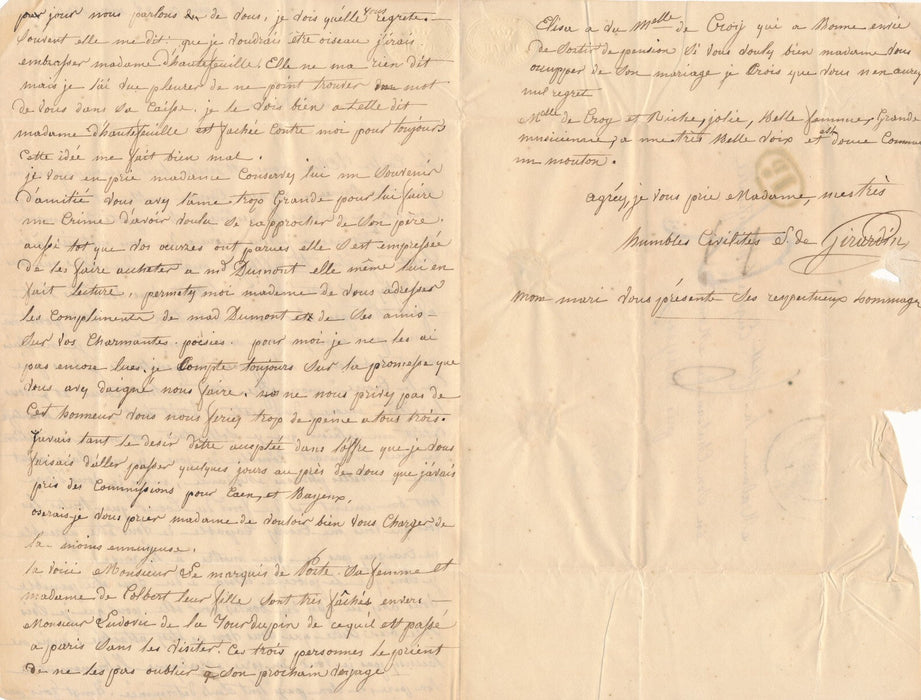 par jour nous parlons de vous, je vois qu'elle vous regrette.
Souvent elle me dit que je voudrais être oiseau j'irais
embrasser madame d'hautefeuille. Elle ne ma rien dit
mais je l'ai vue pleurer de ne point trouver un mot
de vous dans sa Caisse. je le vois bien a t elle dit
madame d'hautefeuille est fachée contre moi pour toujours
Cette idée me fait bien mal.
je vous en prie madame Conservez lui un Souvenir
d'amitié vous avez l'âme trop Grande pour lui faire
un Crime d'avoir voulu se rapprocher de Son père.
aussi tot que vos œuvres ont parues elle s'est empressée
de les faire acheter a md Dumont elle même lui en
fait lecture, permetez moi madame de vous adresser
les Complements de mad Dumont et de Ses amis
Sur vos Charmantes poésies. pour moi je ne les ai
pas encore lues, je Compte toujours Sur la promesse que
vous avez daigné nous faire. ne nous privez pas de
Cet honneur vous nous feriez trop de peine a tous trois.
J'avais tant le desir d'être acceptée dans l'offre que je vous
faisais d'aller passer quelques jours auprès de vous que j'avais
pris des Commissions pour Caen, et Bayeux.
oserais je vous prier madame de vouloir bien vous Charger de
la moins ennuyeuse.
la voici Monsieur Le marquis de Sa femme et
madame de Colbert leur fille Sont très fâchés envers
Monsieur Ludovic de la Tour dupin de cequil est passé
a paris Sans les visiter. Ces trois personnes le prient
de ne les pas oublier a Son prochain voyage
Elisa a vu Melle de Croy qui a Bonne envie
de Sortir de pension Si vous vouliez bien madame vous
occupper de Son mariage je Crois que vous n'en aurez
nul regret
Melle de Croy est Riche, jolie, Belle femme, Grande
musicienne, a une très Belle voix et est douce Comme
un mouton.
agréez, je vous prie Madame, mes très
humbles Civilités E. de Girardin
mon mari vous présente Ses respectueux hommage